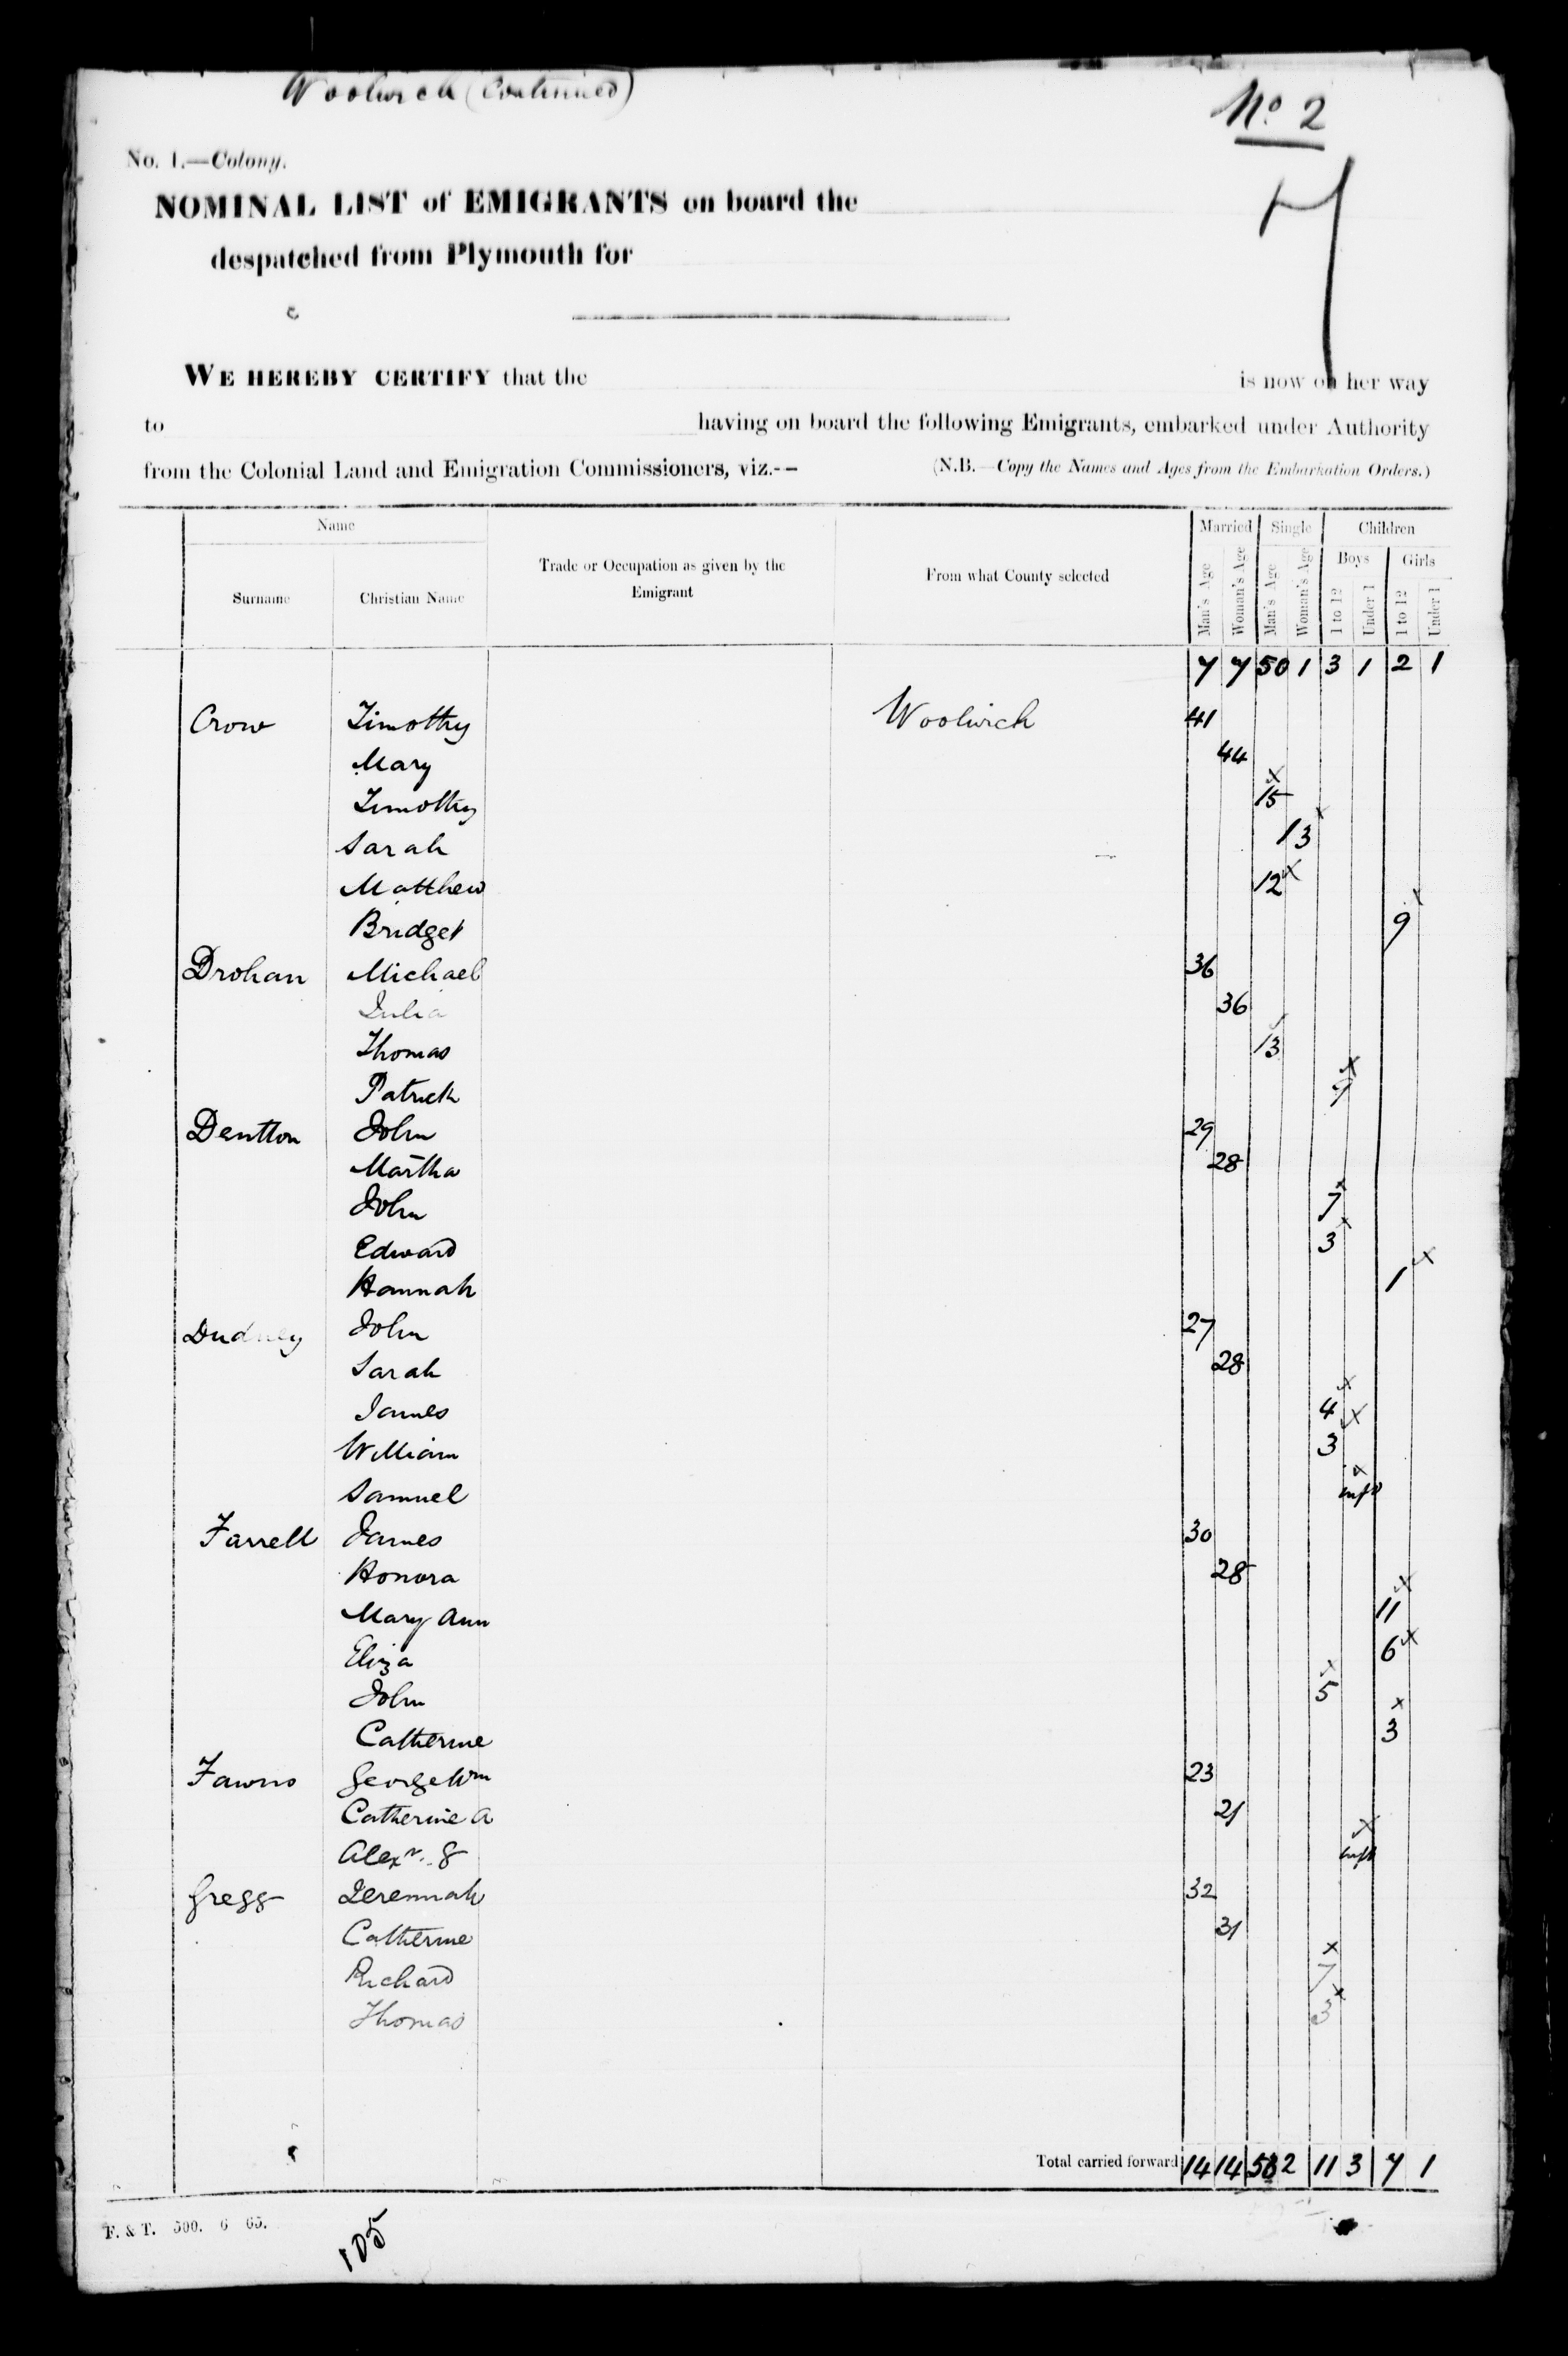 Woolwich (Continued)
No 2
7
No. 1.—Colony.
NOMINAL LIST of EMIGRANTS on board the
despatched from Plymouth for
WE HEREBY CERTIFY that the is now on her way
to having on board the following Emigrants, embarked under Authority
from the Colonial Land and Emigration Commissioners, viz.-- (N.B.—Copy the Names and Ages from the Embarkation Orders.)
Name Married Single Children
Trade or Occupation as given by the Emigrant From what County selected Boys Girls
Surname Christian Name Man's Age Woman's Age Man's Age Woman's Age 1 to 12 Under 1 1 to 12 Under 1
7 7 50 1 3 1 2 1
Crow Timothy Woolwich 41
Mary 44
Timothy x 15
Sarah 13 x
Matthew 12 x
Bridget 9 x
Drohan Michael 36
Julia 36
Thomas 13
Patrick 7 x
Dentton John 29
Martha 28
John 7 x
Edward 3 x
Hannah 1 x
Dudney John 27
Sarah 28
James 4 x
William 3 x
Samuel inft x
Farrell James 30
Honora 28
Mary Ann 11 x
Eliza 6 x
John 5 x
Catherine 3 x
Fawns George Wm 23
Catherine A 21
Alexr. G inft x
Gregg Jeremiah 32
Catherine 31
Richard 7 x
Thomas 3 x
Total carried forward 14 14 2 11 3 7 1
F. & T. 500. 6 65.
105